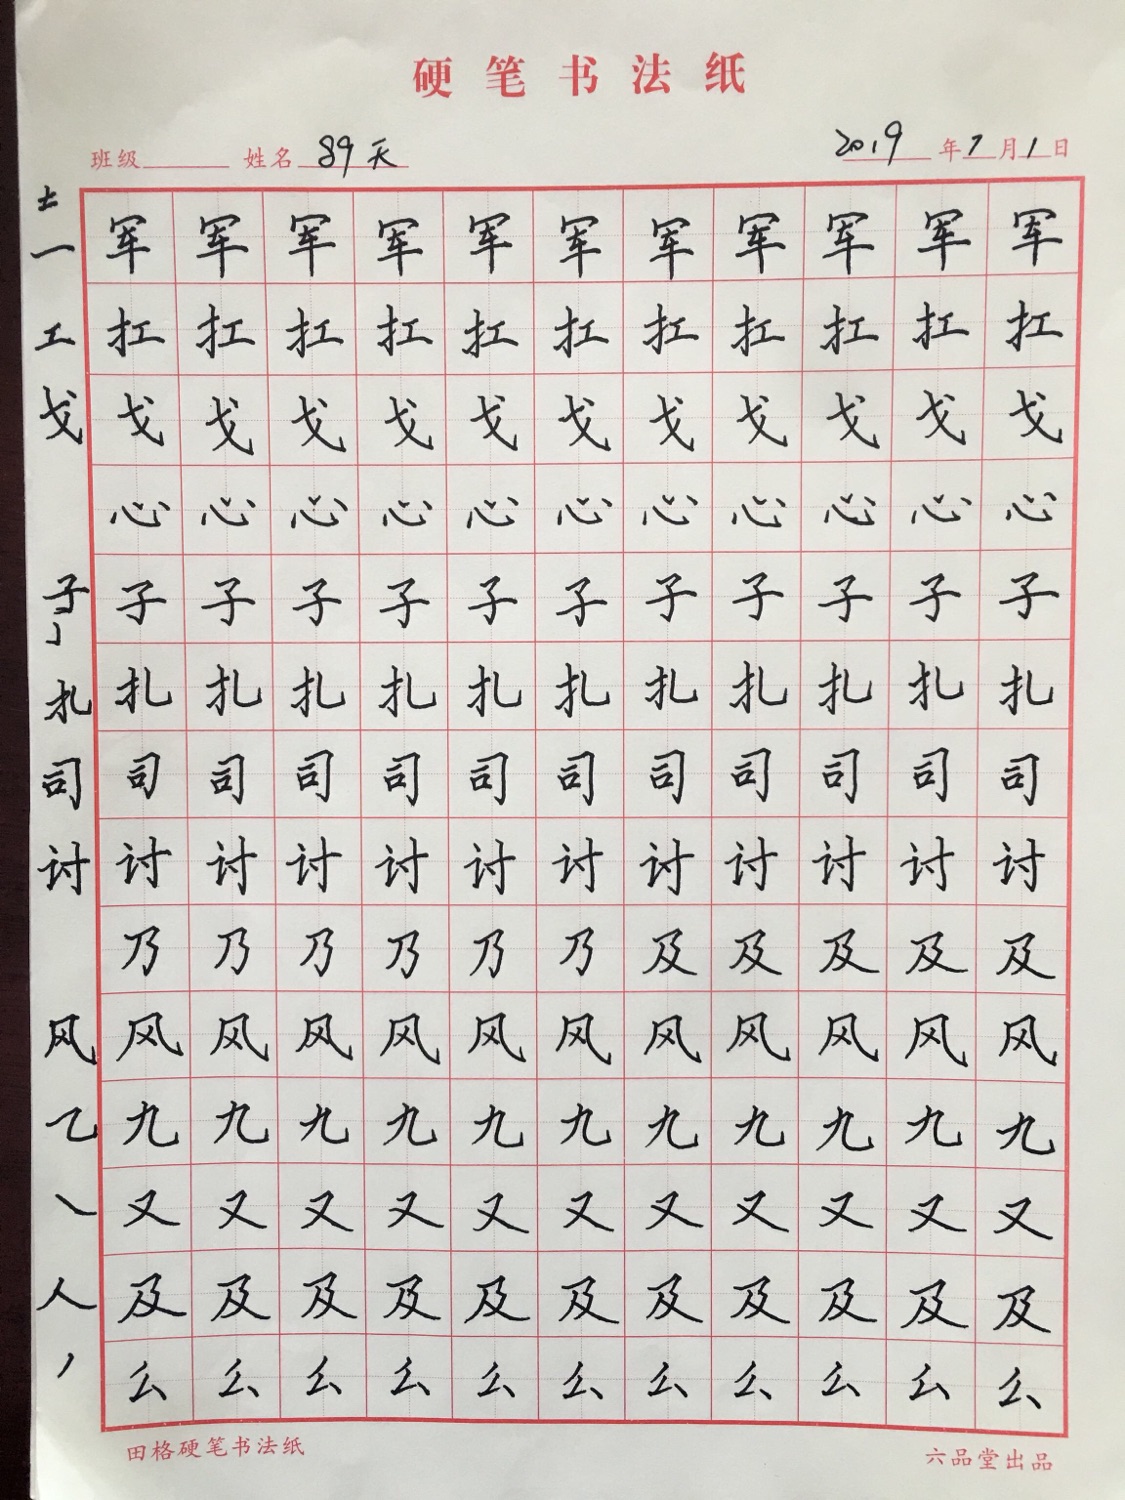 硬笔书法纸
班级 姓名 89天 2019年7月1日
军军军军军军军军军军军
一
工 扛扛扛扛扛扛扛扛扛扛扛
戈 戈戈戈戈戈戈戈戈戈戈戈
心心心心心心心心心心心
子 子子子子子子子子子子子
亅
扎 扎扎扎扎扎扎扎扎扎扎扎
司 司司司司司司司司司司司
讨 讨讨讨讨讨讨讨讨讨讨讨
乃乃乃乃乃乃及及及及及
风 风风风风风风风风风风风
乙 九九九九九九九九九九九
㇏ 又又又又又又又又又又又
人 及及及及及及及及及及及
丿 么么么么么么么么么么么
田格硬笔书法纸 六品堂出品